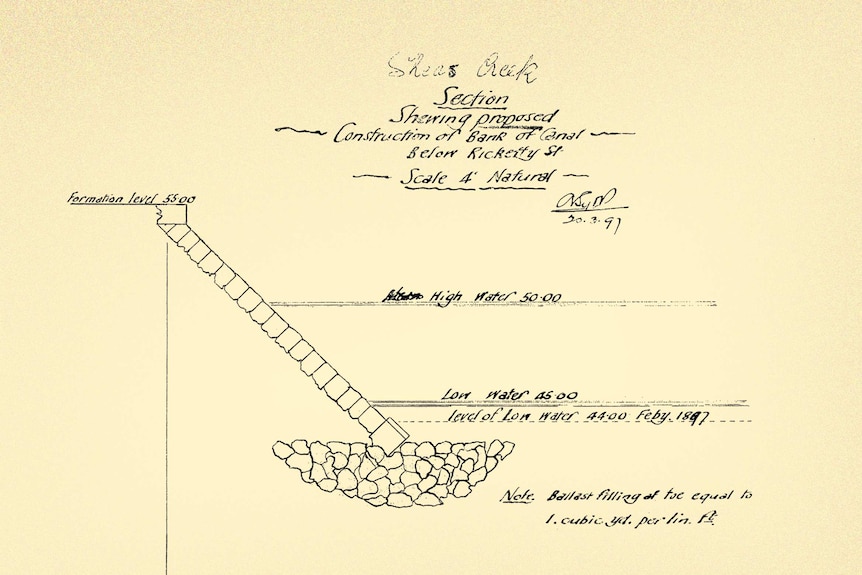 Sheas Creek
Section
Shewing proposed
Construction of Bank of Canal
Below Ricketty St
Scale 4' Natural
20.3.97
Formation level 55·00
High Water 50·00
Low Water 45·00
level of Low Water 44·00 Feby. 1897
Note. Ballast filling at toe equal to
1. cubic yd. per lin. Ft.